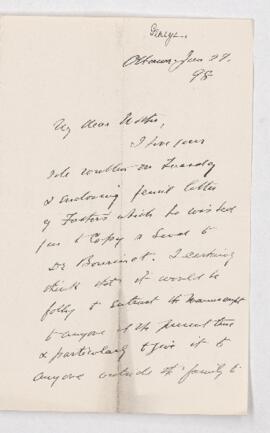 Ottawa, Jan 27.
98
My dear Mother,
I have your
note written on Tuesday
& enclosing pencil letter
of Foster's which he wished
you to copy & send to
Dr Bourinot. I certainly
think that it would be
folly to entrust the Manuscript
to anyone at the present time
& particularly to give it to
anyone outside the family to